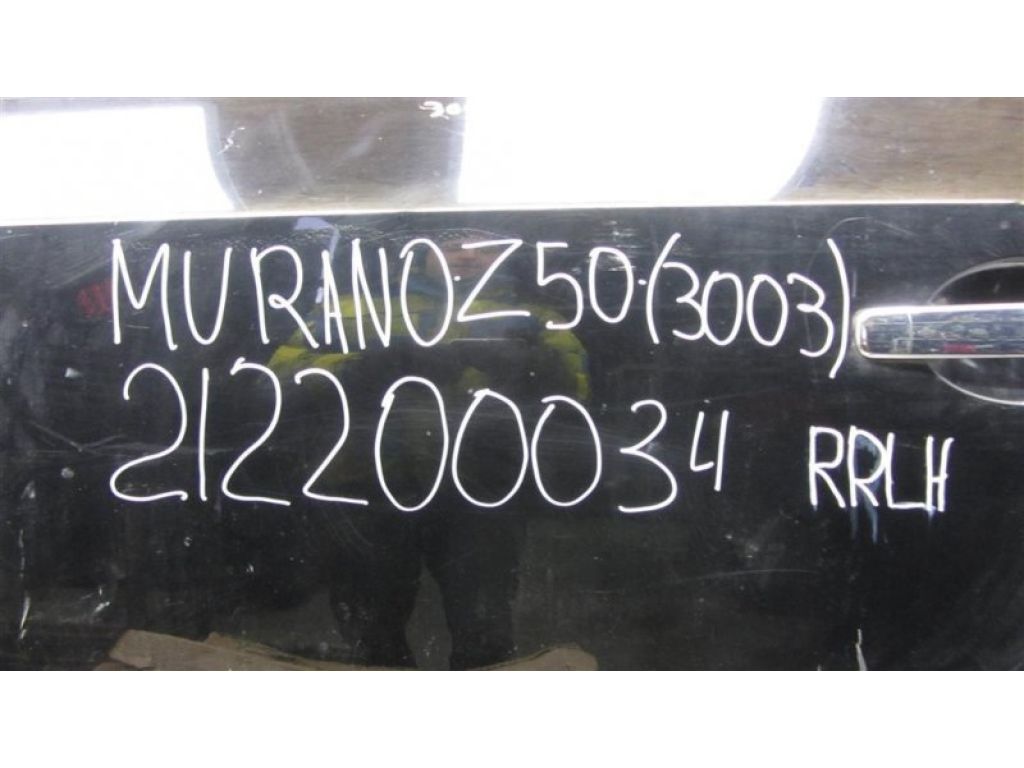 MURANO-Z50-(3003)
212200034 RRLH